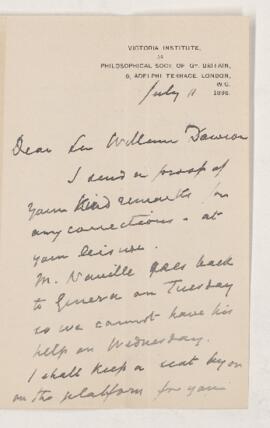 VICTORIA INSTITUTE,
OR
PHILOSOPHICAL SOCY. OF GT. BRITAIN,
8, ADELPHI TERRACE, LONDON,
W.C.
July 11 1896.
Dear Sir William Dawson
I send a proof of
your kind remarks for
any corrections - at
your leisure.
M. Naville goes back
to Geneva on Tuesday
so we cannot have his
help on Wednesday.
I shall keep a seat by
on the platform for you